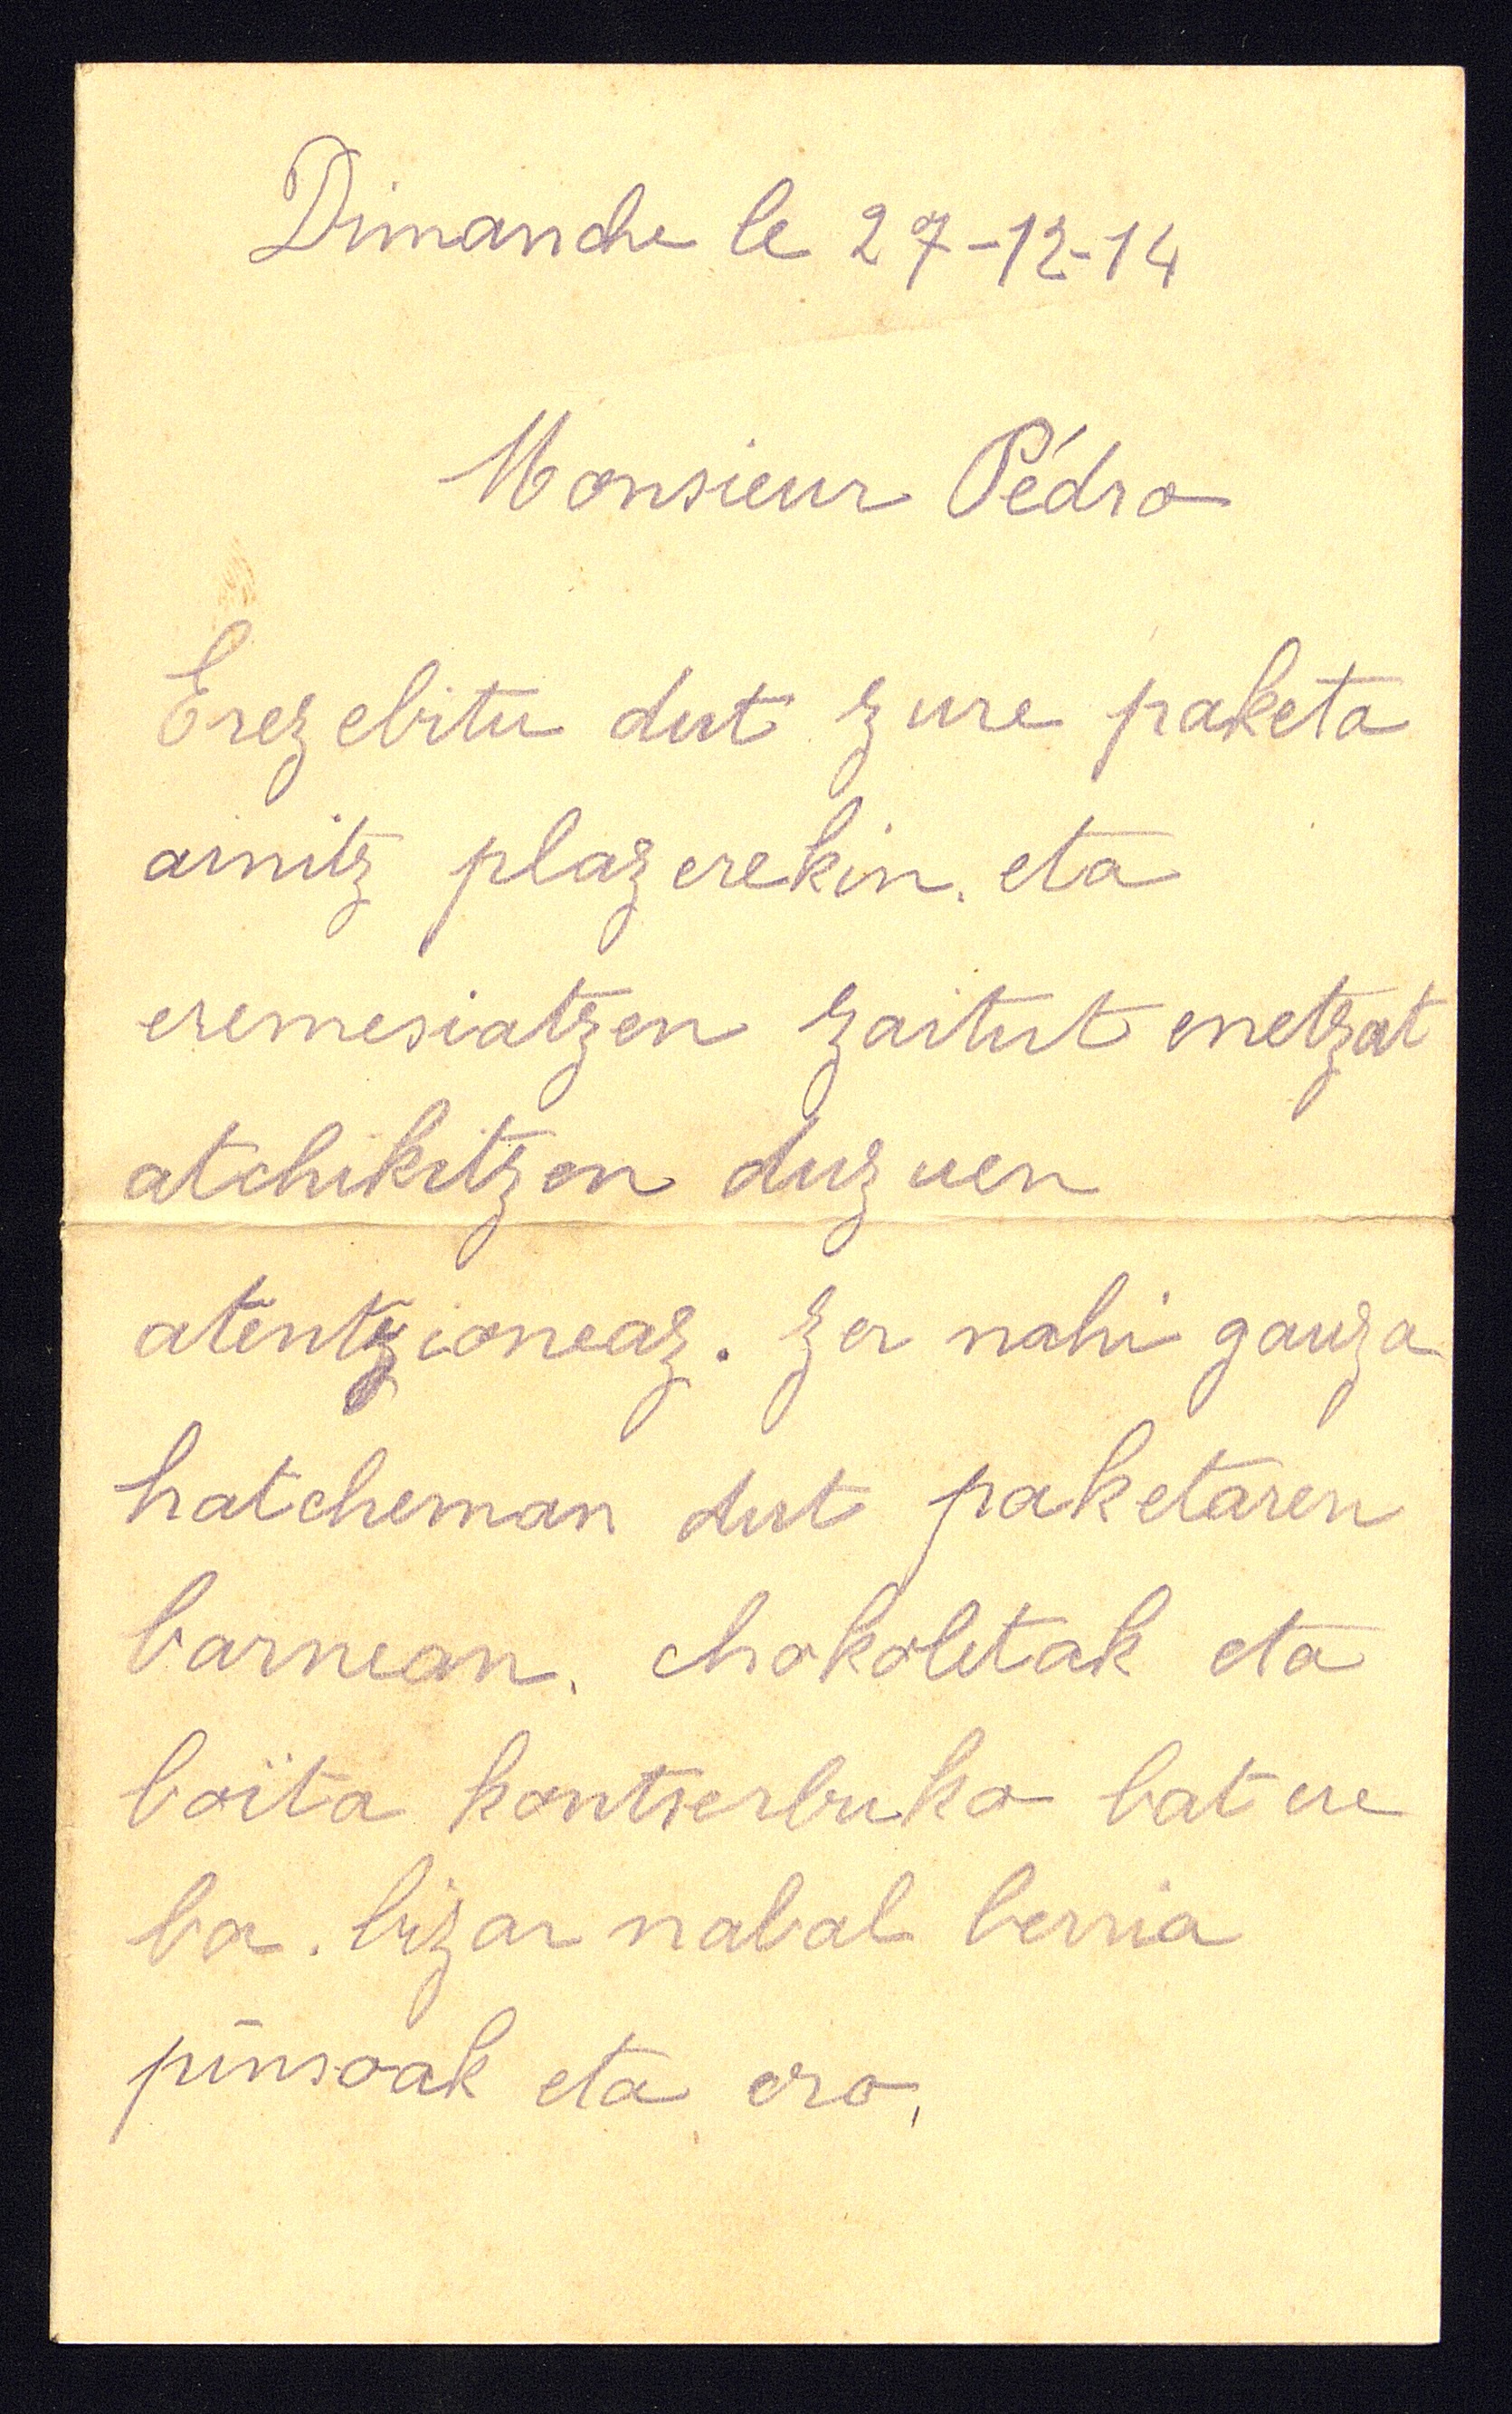 Dimanche le 27-12-14
Monsieur Pédro
Erezebitu dut zure paketa
arnitz plazerekin. eta
eremesiatzen zaitut enetzat
atchikitzen duzuen
atentzioneaz. zer nahi gauza
hatcheman dut paketaren
barnean. chokoletak eta
boïta kontserbuko bat ere
ba. bizar nabal berria
pinsoak eta oro,